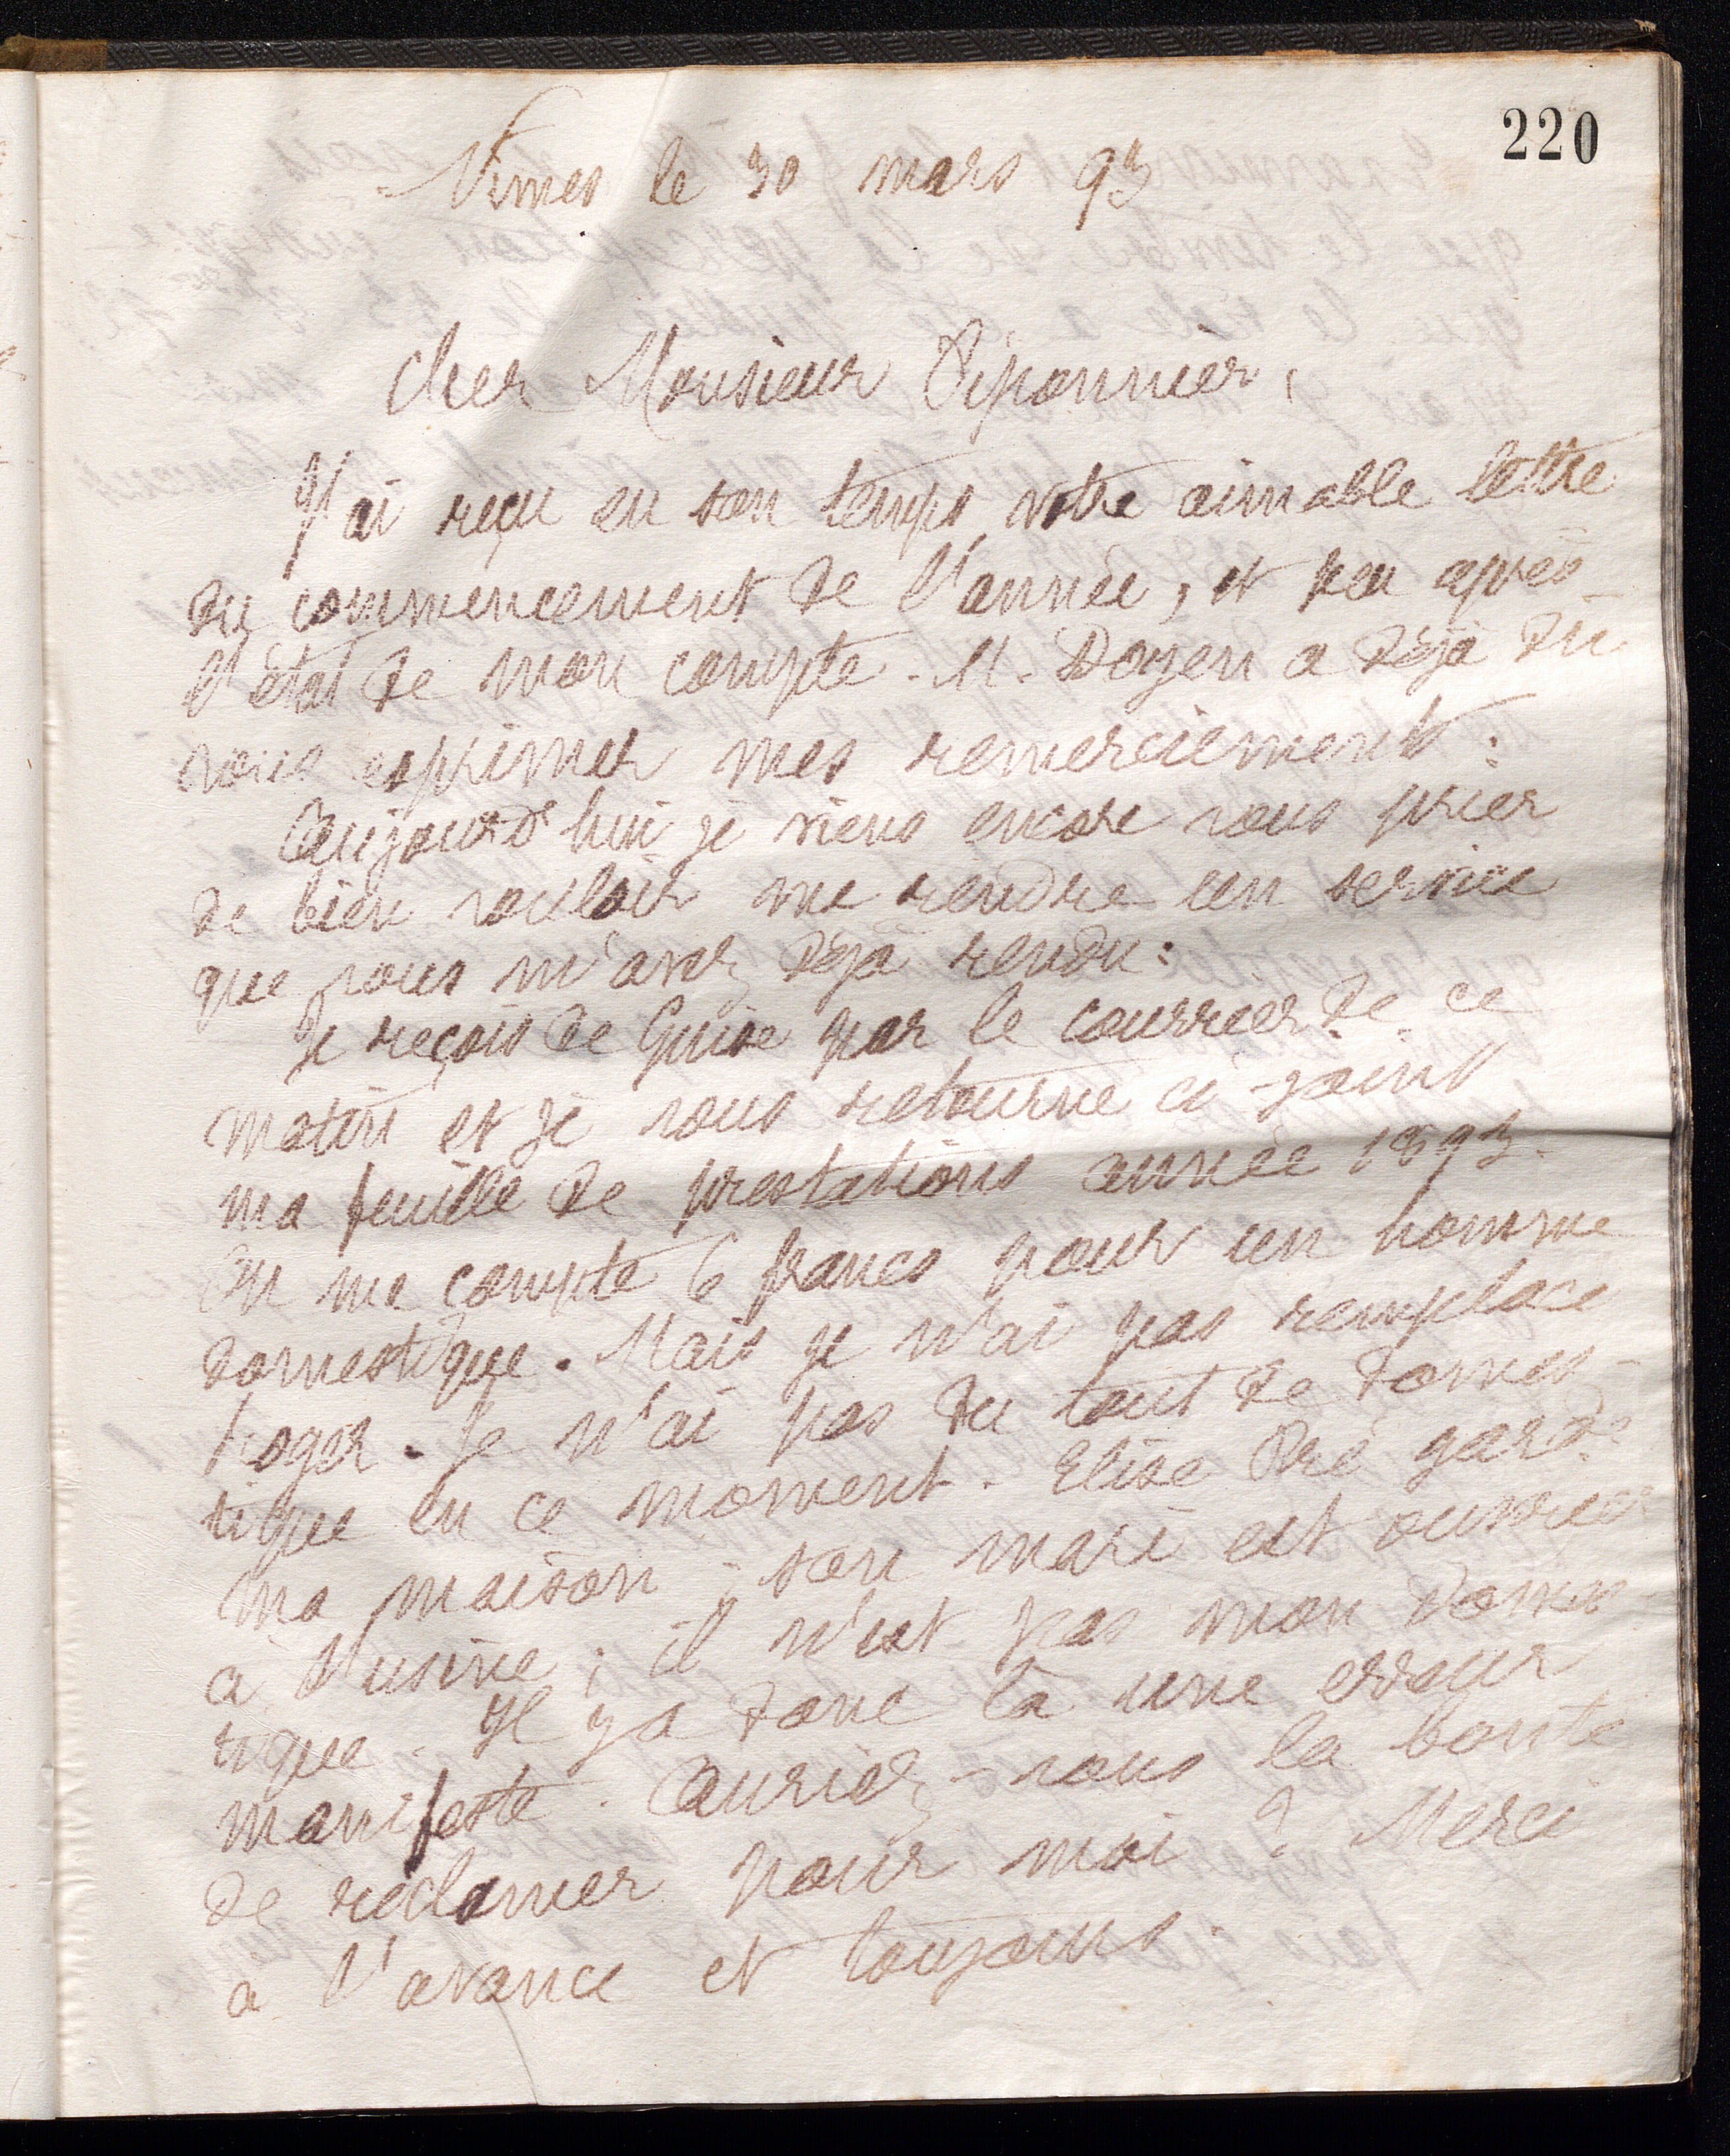 220
Nimes le 30 mars 93
Cher Monsieur Piponnier,
J'ai reçu en son temps votre aimable lettre
du commencement de l'année, et peu après
l'état de mon compte. M. Doyen a déjà dû
vous exprimer mes remerciements.
Aujourd'hui je viens encore vous prier
de bien vouloir me rendre un service
que vous m'avez déjà rendu:
Je reçois de Guise par le courrier de ce
matin et je vous retourne ci-joint
ma feuille de prestations année 1893.
On me compte 6 francs pour un homme
domestique. Mais je n'ai pas remplacé
Roger. Je n'ai pas du tout de domes-
tique en ce moment. Elise Pré garde
ma maison; son mari est ouvrier
à l'usine; il n'est pas mon domes-
tique. Il y a donc là une erreur
manifeste. Auriez-vous la bonté
de réclamer pour moi? Merci
à l'avance et toujours